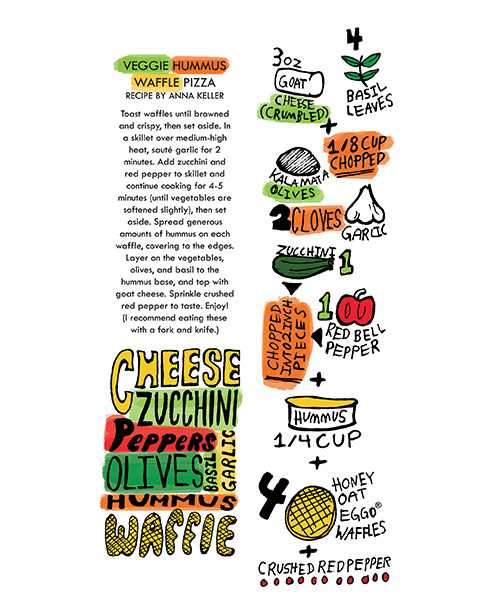 VEGGIE HUMMUS
WAFFLE PIZZA
RECIPE BY ANNA KELLER
Toast waffles until browned
and crispy, then set aside. In
a skillet over medium-high
heat, sauté garlic for 2
minutes. Add zucchini and
red pepper to skillet and
continue cooking for 4-5
minutes (until vegetables are
softened slightly), then set
aside. Spread generous
amounts of hummus on each
waffle, covering to the edges.
Layer on the vegetables,
olives, and basil to the
hummus base, and top with
goat cheese. Sprinkle crushed
red pepper to taste. Enjoy!
(I recommend eating these
with a fork and knife.)
CHEESE
ZUCCHINI
PEPPERS
OLIVES
BASIL
GARLIC
HUMMUS
WAFFlE
3oz
GOAT
CHEESE
(CRUMBLED)
4
BASIL
LEAVES
+
KALAMATA
OLIVES
1/8 CUP
CHOPPED
2 CLOVES
GARLIC
ZUCCHINI
1
CHOPPED
INTO 2 INCH
PIECES
1
RED BELL
PEPPER
+
HUMMUS
1/4 CUP
+
4
HONEY
OAT
EGGO®
WAFFLES
+
CRUSHED RED PEPPER